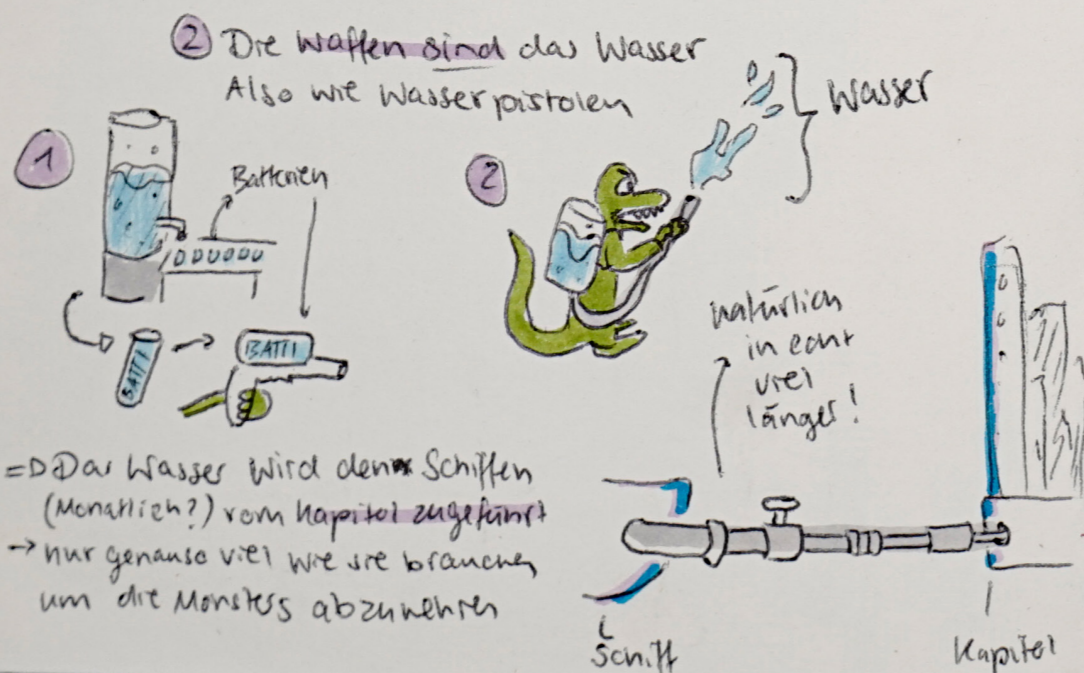 ② Die Waffen sind das Wasser
Also wie Wasserpistolen
Wasser
1
Batterien
2
BATTI
BATTI
natürlich
in echt
viel
länger!
=> Das Wasser wird den Schiffen
(Monatlich?) vom Kapitol zugeführt
→ nur genauso viel wie sie brauchen
um die Monsters abzuwehren
Schiff
Kapitol